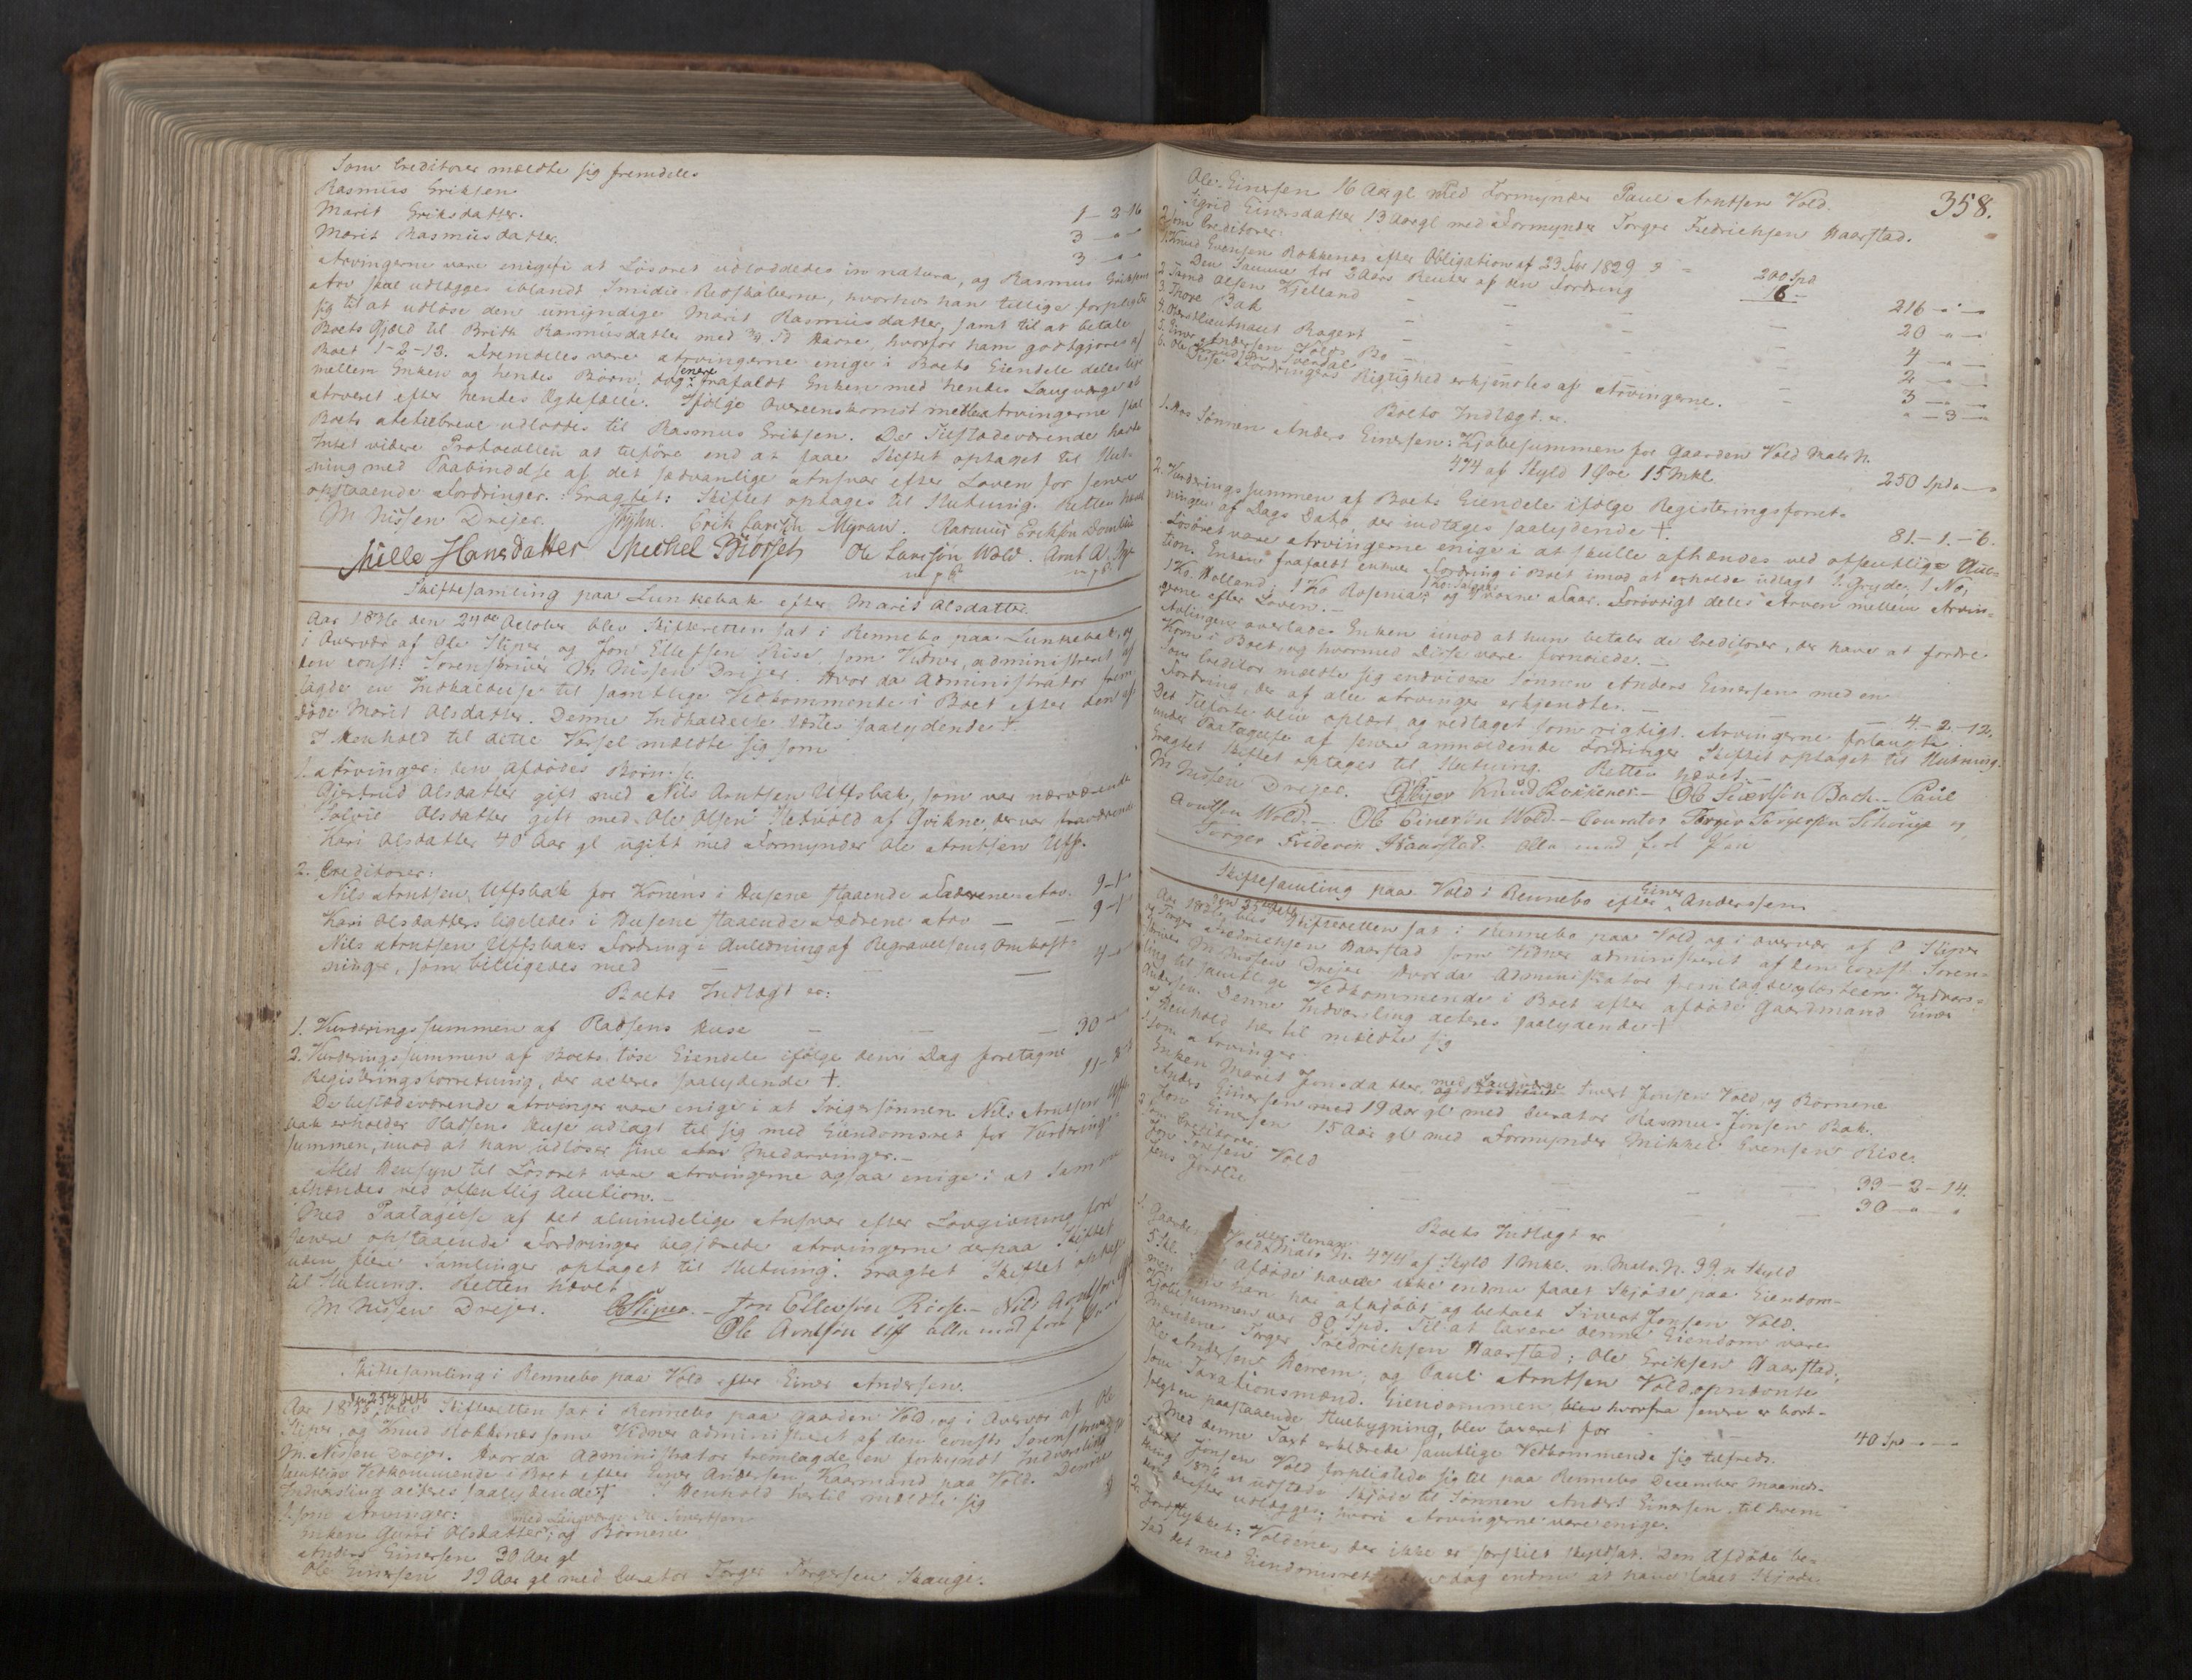 Som Creditorer meldte sig fremdeles
Rasmus Eriksen 1 - 2 - 16
Marit Eriksdatter. 3 - " - "
Marit Rasmusdatter. 3 - " - "
Arvingerne vare enige i at Løsøret udloddedes in natura, og Rasmus Eriksens
Arv skal udlægges iblandt Smidie Redskaberne, hvorhos han tillige forpligter
sig til at udløse den umyndige Marit Rasmusdatter, samt til at betale
Boets Gjæld til Britt Rasmusdatter med hvorfor ham godtgjøres af
Boet 1-2-13. Fremdeles vare Arvingerne enige i Boets Eiendele deles lige
mellem Enken og hendes Børn, dog frafaldt Enken med hendes Laugværge at
Arveret efter hendes Ægtefælle. Ifølge Overeenskomst mellem Arvingerne skal
Boets udloddes til Rasmus Eriksen. De Tilstedeværende havde
Intet videre Protocollen at tilføre end at faae Skiftet optaget til Slut-
ning med Paabindelse af det sædvanlige Ansvar efter Loven for senere
opstaaende Fordringer. Eragtet: Skiftet optages til Slutning. Retten hævet
M Nissen Dreier. Erik Larsen Myran. Rasmus Eriksen
Mille Hansdatter Michel Ole Larsen Wold. Arnt A.
m p P m p P
Skiftesamling paa Lunkebak efter Marit Olsdatter.
Aar 1836 den 24de October blev Skifteretten sat i Rennebo paa Lunkebak, og
i Overvær af Ole Stiper og Jon Ellefsen Riise, som Vidner, administreret af
den const: Sorenskriver M Nissen Drejer. Hvor da Administrator frem-
lagde en Indkaldelse til samtlige Vedkommende i Boet efter den af-
døde Marit Olsdatter. Denne Indkaldelse læstes saalydende †
I Henhold til dette Varsel meldte sig som
1. Arvinger: den Afdødes Børn: sc.
Gjertrud Olsdatter gift med Nils Arntsen Uffsbak, som var nærværende
Olsdatter gift med Ole Olsen Hevold af Qvikne, der var fraværende
Kari Olsdatter 40 Aar gl ugift med Formynder Ole Arntsen Uffs.
2. Creditorer:
Nils Arntsen Uffsbak for Konens i Husene staaende Fædrene Arv. 9 - 1 -
Kari Olsdatters ligeledes i Husene staaende Fædrene Arv 9 - 1 -
Nils Arntsen Uffsbaks Fordring i Anledning af Begravelsens Omkost-
ninger, som billigedes med 4 - "
Boets Indtægt er:
1. Vurderingssummen af Pladsens Huse 30 - "
2. Vurderingssummen af Boets løse Eiendele ifølge denne Dag foretagne
Registreringsforretning, der acteres saalydende †.
De tilstedeværende Arvinger vare enige i at Svigersønnen Nils Arntsen Uffs-
bak erholder Pladsens Huse udlagt til sig med Eiendomsret for Vurderings-
summen, imod at han udløser sine Medarvinger.-
Med Hensyn til Løsøret vare Arvingerne ogsaa enige i at Samme
afhændes ved offentlig Auction.-
Med Paatagelse af det almindelige Ansvar efter Lovgivning for
senere opstaaende Fordringer begjærede Arvingerne derpaa Skiftet
uden flere Samlinger optaget til Slutning. Eragtet Skiftet optages
til Slutning. Retten hævet
M Nissen Dreier. OStiper.- Jon Ellevsen Riise- Nils Arntsen
Ole Arntsøn Uff alle med ført Pen
Skiftesamling i Rennebo paa Vold efter Einer Andersen.
den 25 Octb
Aar 1836, blev Skifteretten sat i Rennebo paa Gaarden Vold, og i Overvær af Ole
Stiper, og Knud Rokkenæs som Vidner administreret af den const: Sorenskriver
M. Nissen Dreyer. Hvor da Administrator fremlagde en forkyndt Indvarsling
samtlige Vedkommende i Boet efter Einer Andersen Kaarmand paa Vold. Denne
Indvarsling acteres saalydende † I Henhold hertil meldte sig
1. som Arvinger: med Laugværge Ole Sivertsen
Enken Guri Olsdatter, og Børnene
Anders Einersen 30 Aar gl
Ole Einersen 19 Aar gl med Curator Torger Torgersen Skauge.
358.
Ole Einersen 16 Aar gl med Formynder Paul Arntsen Vold.
Sigrid Einersdatter 13 Aar gl med Formynder Torger Fredrichsen Haarstad.
2. Som Creditorer:
1. Knud Evensen Rokkenes efter Obligation af 23 1829 200 Spd
Den Samme for 2 Aars Renter af den Fordring 16 - 216 - " - "
2. Trond Olsen Kjelland 20 - " - "
3. Thore Bak 4 - " - "
4. Oberstlieutnant Bagert 2 - " - "
5. Einer Andersen Volds Bo 3 - " - "
6. Ole Svendal " - 3 - "
Disse Fordringers Rigtighed erkjendtes af Arvingerne.
Boets Indtægt er.
1. Hos Sønnen Anders Einersen: Kjøbesummen for Gaarden Vold Matr. N.
474 af Skyld 1 Øre 15 Mkl. 250 Spd " - "
2. Vurderingssummen af Boets Eiendele ifølge Registreringsforret-
ningen af Dags Dato, der indtages saalydende † 81. - 1. - 6.
Løsøret vare Arvingerne enige i at skulle afhændes ved offentlig Auc-
tion. Enken frafaldt enhver Fordring i Boet imod at erholde udlagt 1 Gryde, 1 No,
1 Ko Holland; 1 Ko Rosenia, og voxne Faar. Forøvrigt deles Arven mellem Arvin-
gerne efter Loven.-
Avlingen overlades Enken imod at hun betaler de Creditorer, der have at fordre
Korn i Boet, og hvormed Disse vare fornøiede.-
Som Creditor meldte sig endvidere Sønnen Anders Einersen med en
Fordring, der af alle Arvinger erkjendtes.- 4 - 2 - 12.
Det Tilførte blev oplæst, og vedtaget som rigtigt. Arvingerne forlangte
under Paatagelse af senere anmeldende Fordringer Skiftet optaget til Slutning.
Eragtet Skiftet optages til Slutning. Retten hævet
M Nissen Dreyer. OStiper Knud Rokkenes - Ole Siwertsen Bach.- Paul
Arntsen Wold.- Ole Einersøn Wold - Curator Torger Torgersen Schouge og
Torger Friderich Haarstad. alle med ført Pen
Skiftesamling paa Vold i Rennebo efter Einer Anderssen
den 25 October
Aar 1836, blev Skifteretten sat i Rennebo paa Vold og i Overvær af O Stiper
og Torger Fredrichsen Haarstad som Vidner administreret af den const Soren-
skriver M Nissen Dreyer. Hvor da Administrator fremlagde Indvars-
ling til samtlige Vedkommende i Boet efter afdøde Gaardmand Einer
Andersen. Denne Indvarsling acteres saalydende †
I Henhold hertil meldte sig
1. som Arvinger.
Enken Marit Jonsdatter med Laugværge Sivert Jonsen Vold, og Børnene
Anders Einersen 19 Aar gl med Curator Rasmus Jonsen Bak.
Jon Einersen 15 Aar gl med Formynder Mikkel Evensen Rise.
2. som Creditorer.
Jon Jonsen Vold 33 - 2 - 14.
Jens 30 - " - "
Boets Indtægt er
1. Gaarden Vold Matr N. 474 af Skyld 1 Mkl. n. Matr. N. 39. n Skyld
5 Skl. Afdøde havde ikke endnu faaet Skjøde paa Eiendom-
men han har afkjøbt og betalt Sivert Jonsen Vold.
Kjøbesummen var 80 Spd. Til at taxere denne Eiendom vare
Mændene Torger Fredrichsen Haarstad; Ole Eriksen Haarstad,
Ole Andersen Reirem; og Paul Arntsen Vold opnævnte
som Taxationsmænd. Eiendommen, hvorfra senere er bort-
solgt en paastaaende Stuebygning, blev taxeret for 40 Spd " - "
Med denne Taxt erklærede samtlige Vedkommende sig tilfreds.
Sivert Jonsen Vold forpligtede sig til paa Rennebo December Maaneds-
thing 1836 at udstede Skjøde til Sønnen Anders Einersen, til hvem
den derefter udlægges; hvori Arvingerne vare enige.
2. Jordstykket: Voldene, der ikke er særskilt skyldsat. Den Afdøde be-
sad det med Eiendomsret uden dog endnu at have faaet Skjøde